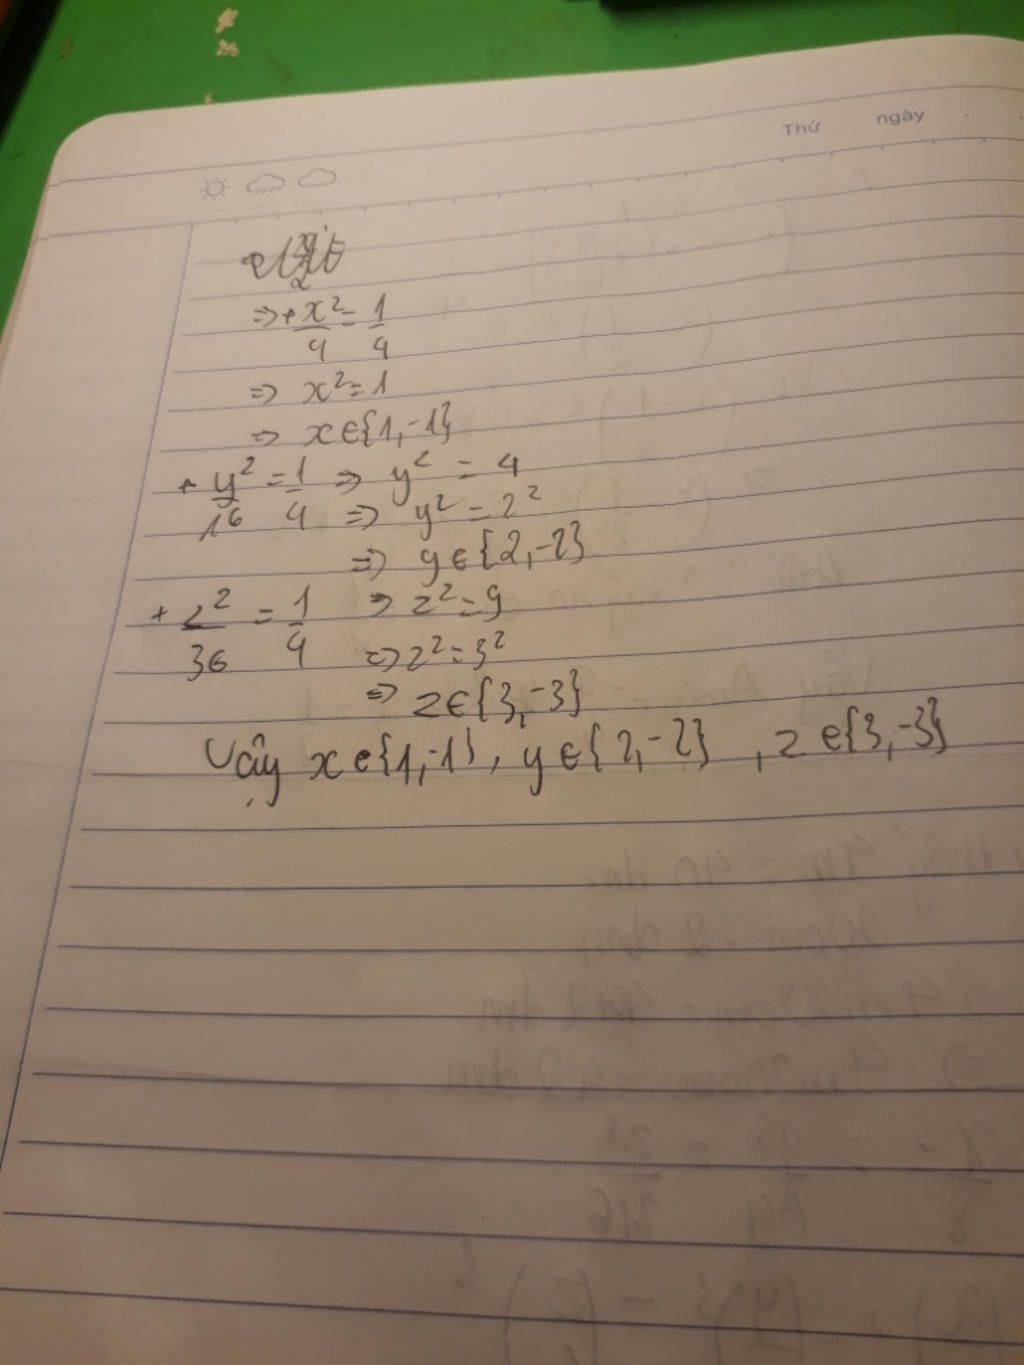 Thứ ngày
⇒ + x²/4 = 1/4
⇒ x² = 1
⇒ x∈{1,-1}
+ y²/16 = 1/4 ⇒ y² = 4
⇒ y² = 2²
⇒ y ∈ {2,-2}
+ z²/36 = 1/4 ⇒ z² = 9
⇒ z² = 3²
⇒ z∈{3,-3}
Vậy x∈{1,-1}, y∈{2,-2}, z∈{3,-3}